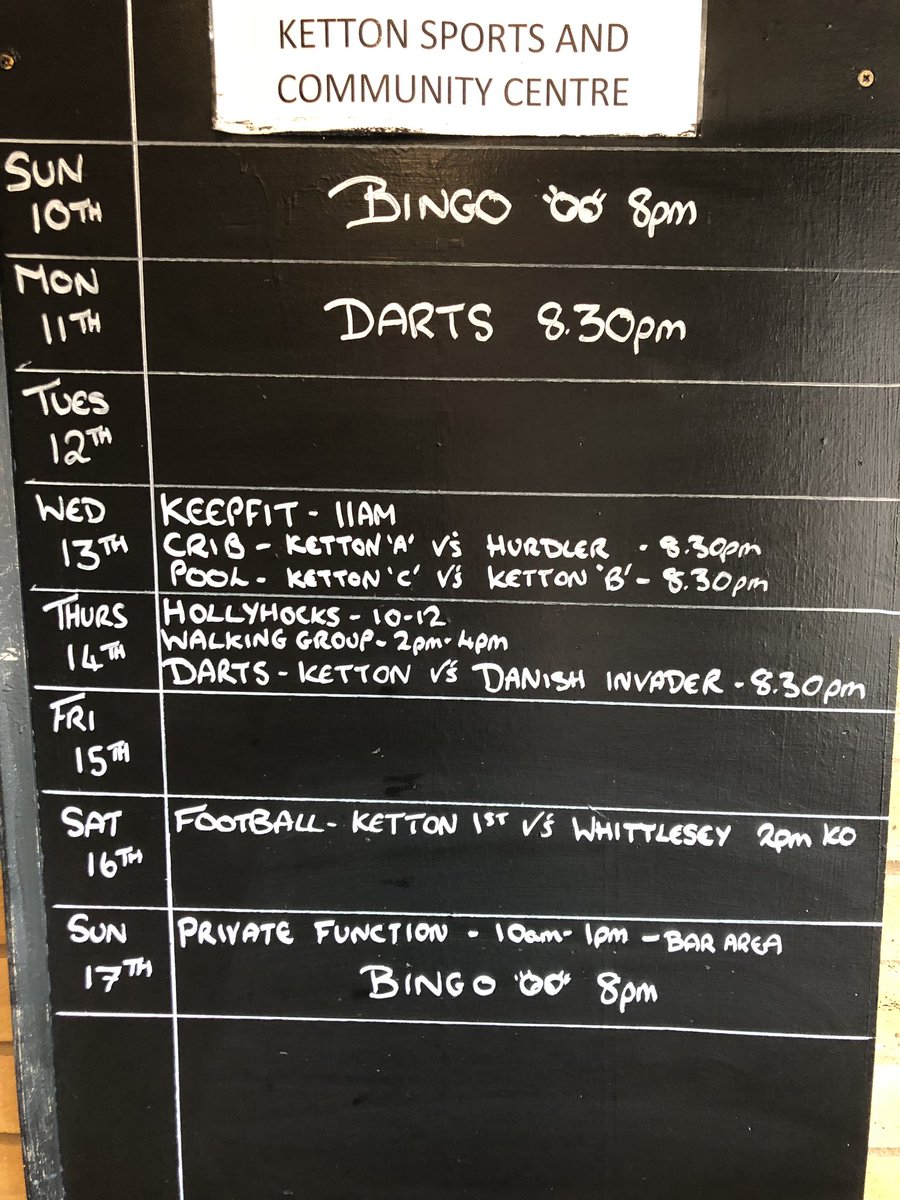 KETTON SPORTS AND
COMMUNITY CENTRE
SUN
10TH
BINGO 8pm
MON
11TH
DARTS 8.30pm
TUES
12TH
WED
13TH
KEEPFIT - 11AM
CRIB - KETTON 'A' V's HURDLER - 8.30pm
POOL - KETTON 'C' V's KETTON 'B' - 8.30pm
THURS
14TH
HOLLYHOCKS - 10-12
WALKING GROUP - 2pm - 4pm
DARTS - KETTON V's DANISH INVADER - 8.30pm
FRI
15TH
SAT
16TH
FOOTBALL - KETTON 1ST V's WHITTLESEY 2pm KO
SUN
17TH
PRIVATE FUNCTION - 10am - 1pm - BAR AREA
BINGO 8pm